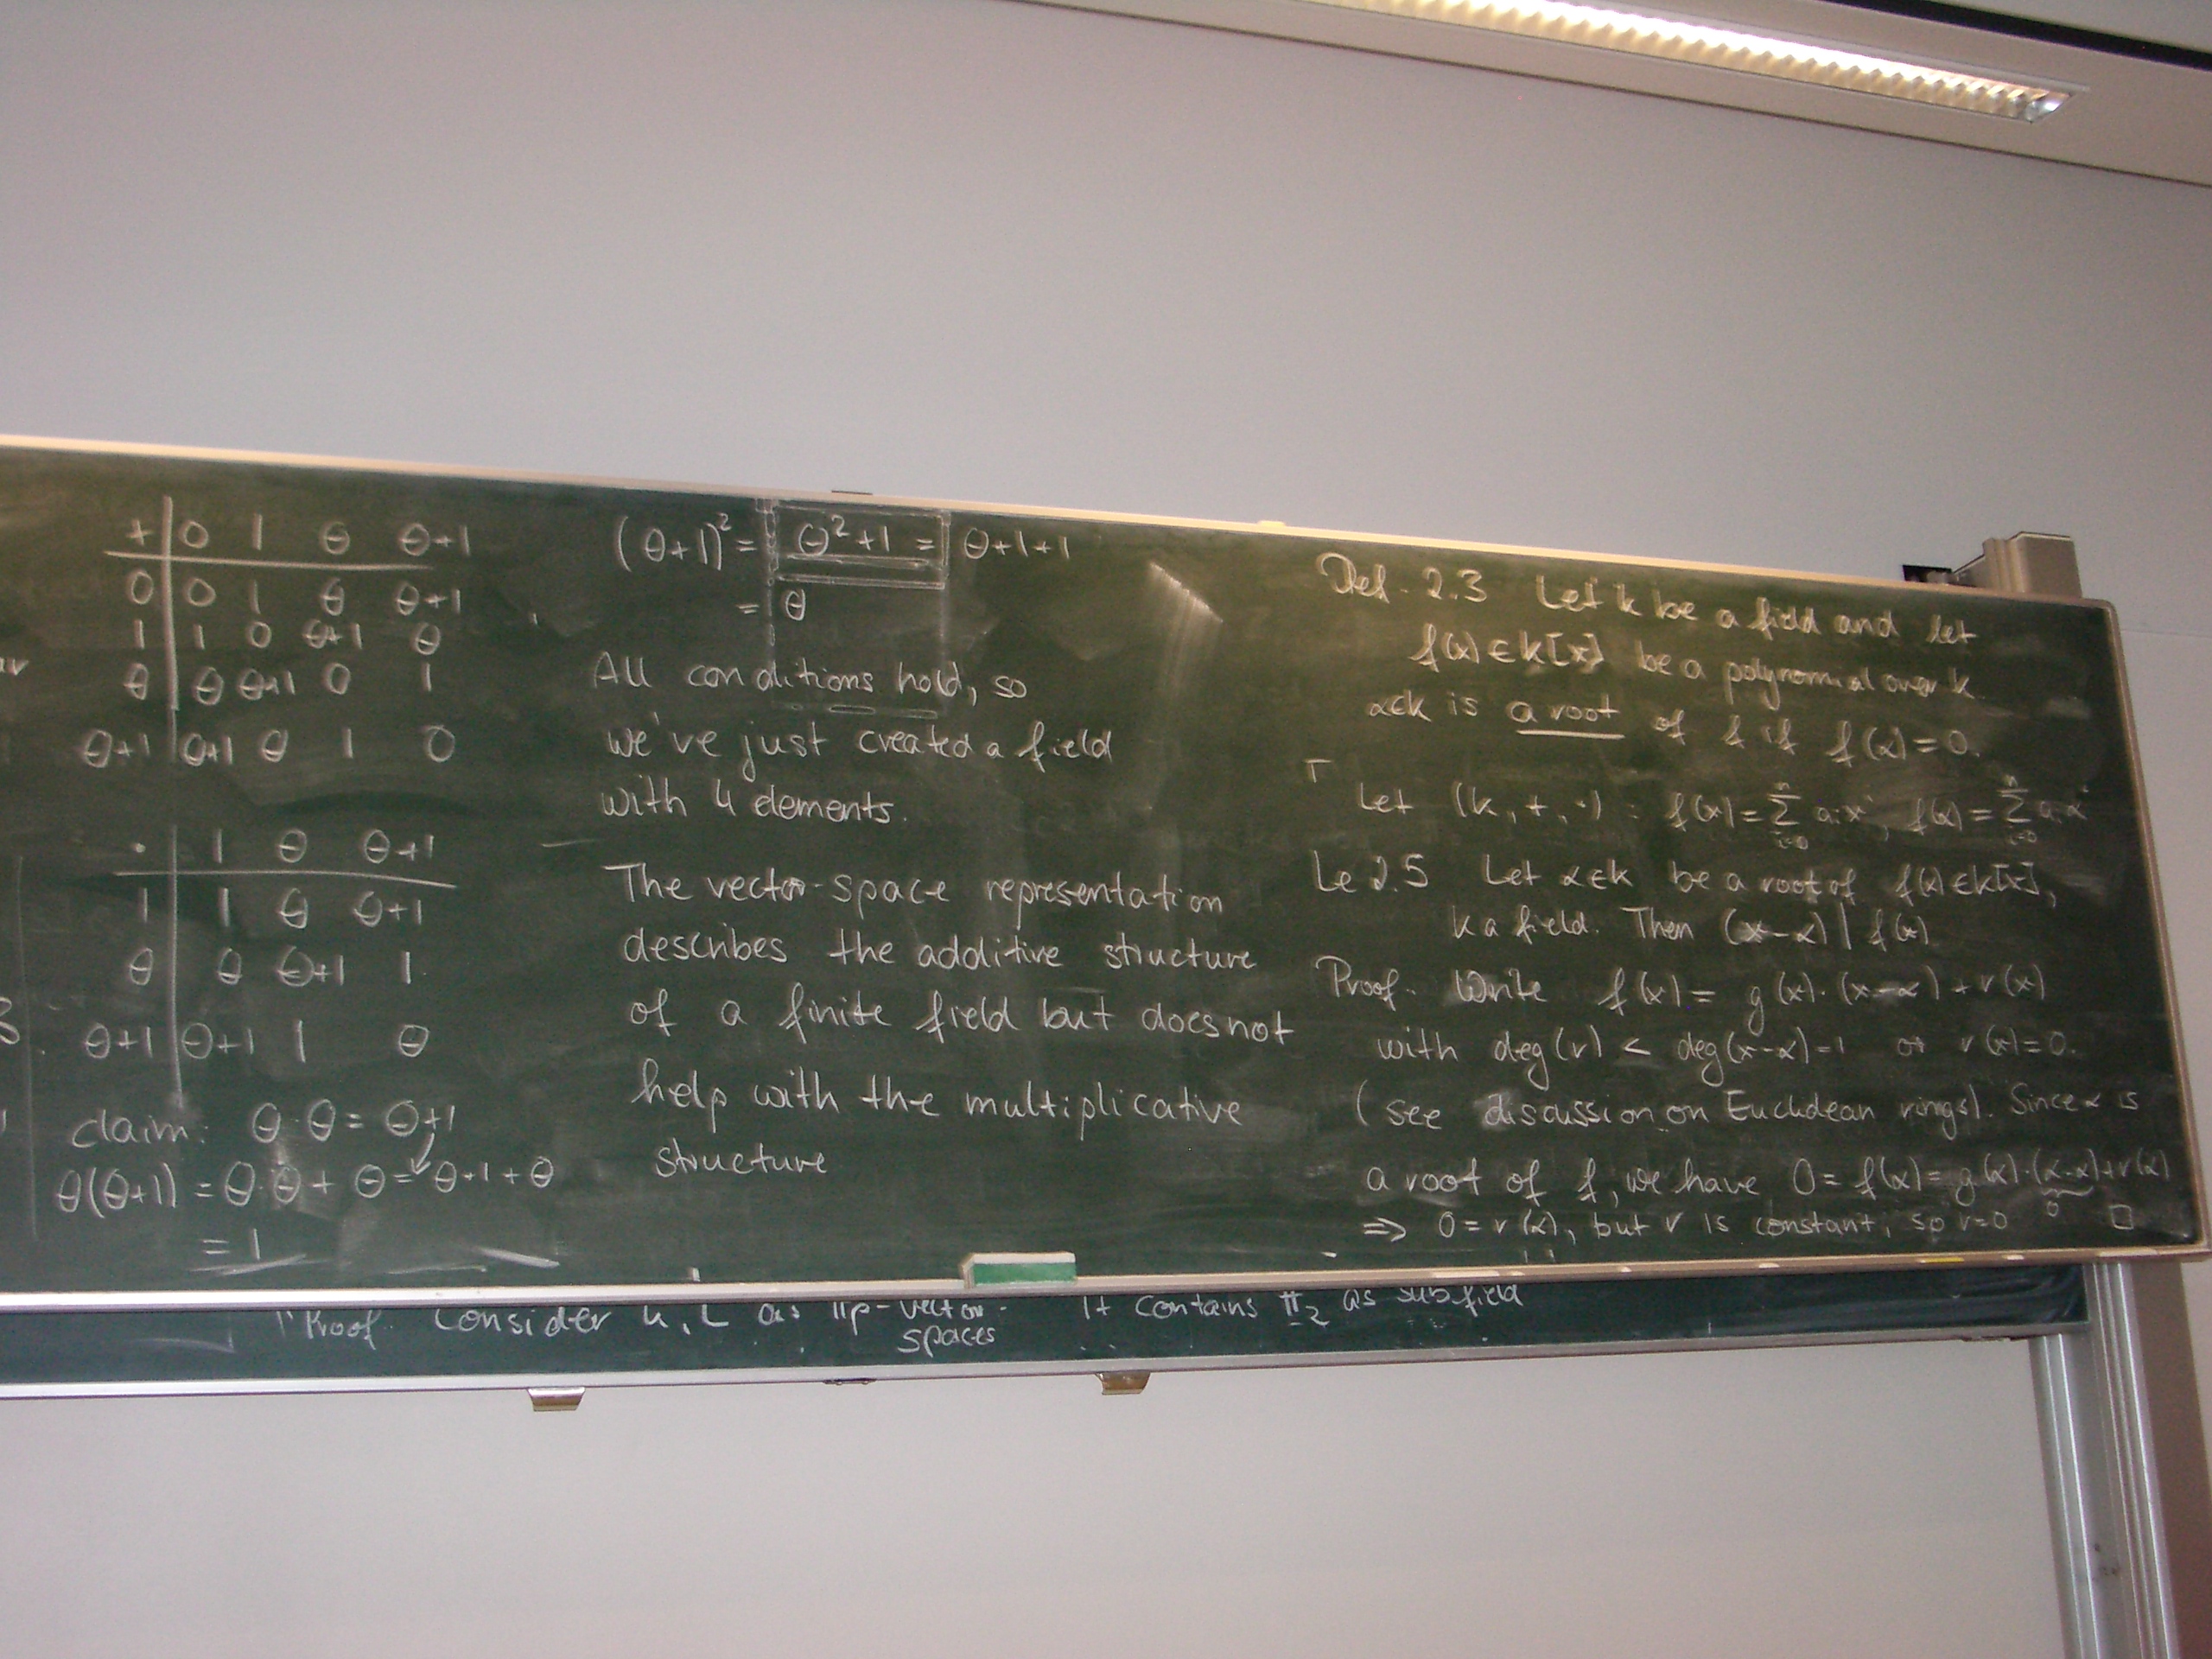 + | 0 1 θ θ+1
0 | 0 1 θ θ+1
1 | 1 0 θ+1 θ
θ | θ θ+1 0 1
θ+1 | θ+1 θ 1 0
· | 1 θ θ+1
1 | 1 θ θ+1
θ | θ θ+1 1
θ+1 | θ+1 1 θ
claim: θ·θ = θ+1
θ(θ+1) = θ·θ + θ = θ+1+θ
= 1
(θ+1)² = θ²+1 = θ+1+1
= θ
All conditions hold, so
we've just created a field
with 4 elements.
The vector-space representation
describes the additive structure
of a finite field but does not
help with the multiplicative
structure
Def. 2.3 Let k be a field and let
f(x) ∈ k[x] be a polynomial over k
α∈k is a root of f if f(α)=0.
Let (k, +, ·) : f(x) = Σ_{i=0}^{n} a_i x^i, f(α) = Σ_{i=0}^{n} a_i α^i
Le 2.5 Let α∈k be a root of f(x)∈k[x],
k a field. Then (x-α) | f(x)
Proof. Write f(x) = g(x)·(x-α) + r(x)
with deg(r) < deg(x-α)=1 or r(x)=0.
(see discussion on Euclidean rings). Since α is
a root of f, we have 0 = f(α) = g(α)·(α-α)+r(α)
0
⇒ 0 = r(α), but r is constant, so r=0 □
Proof. Consider k, L as 𝔽p-vector-
spaces
It contains 𝔽₂ as subfield